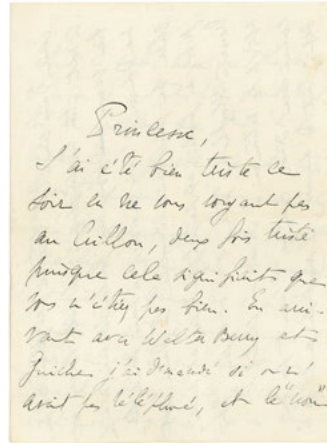 Princesse,
J'ai été bien triste ce
soir en ne vous voyant pas
au Crillon, deux fois triste
puisque cela signifiait que
vous n'étiez pas bien. En arri-
vant avec Walter Berry et
Guiche j'ai demandé si on n'
avait pas téléphoné, et le "non"